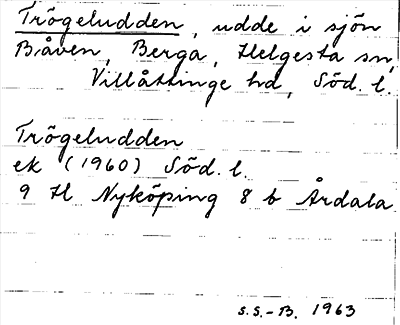 Trögeludden, udde i sjön
Båven, Berga, Helgesta sn,
Villåttinge hd, Söd. l.
Trögeludden
ek (1960) Söd. l.
9 H Nyköping 8 b Årdala
S.S.-B. 1963